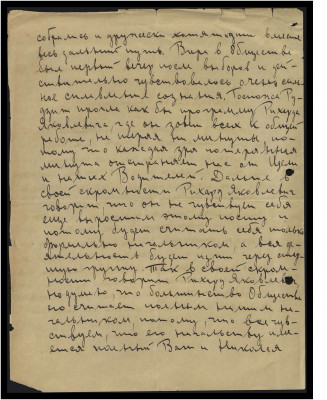 собрались и дружески хотя один в масле
весь дальний путь. Вчера в Обществе
был первый вечер после выборов и дей-
ствительно чувствовалось очень силь-
ное сознания. Господин Ру-
дзит прочел как бы программу Рихарда
Яковлевича, где он зовет всех к общей
работе, не теряя ни минуты, по-
тому что каждая зря потерянная
минута отстраняет нас от Цели
и наших Водителей. Дальше в
своей скромности Рихард Яковлевич
говорит, что он не чувствует себя
еще выросшим этому посту и
потому будет считать себя только
формально начальником, а вся де-
ятельность будет идти через стар-
шую группу. Так в своей скром-
ности говорит Рихард Яковлевич,
но думаю, что большинство Общества
его считает полным нашим на-
чальником, потому, что все чув-
ствуем, что его начальству име-
ется полный Ваш и Николая